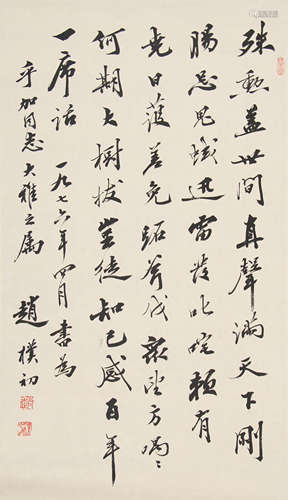 殊勳蓋世間直聲滿天下剛
腸忌鬼蜮迅雷發叱咤賴有
堯日蘊差免跖斧戊衆望方喁〻
何期大樹拔豈徒知己感百年
一席話 一九七六年四月書為
平加同志大雅之屬
趙樸初